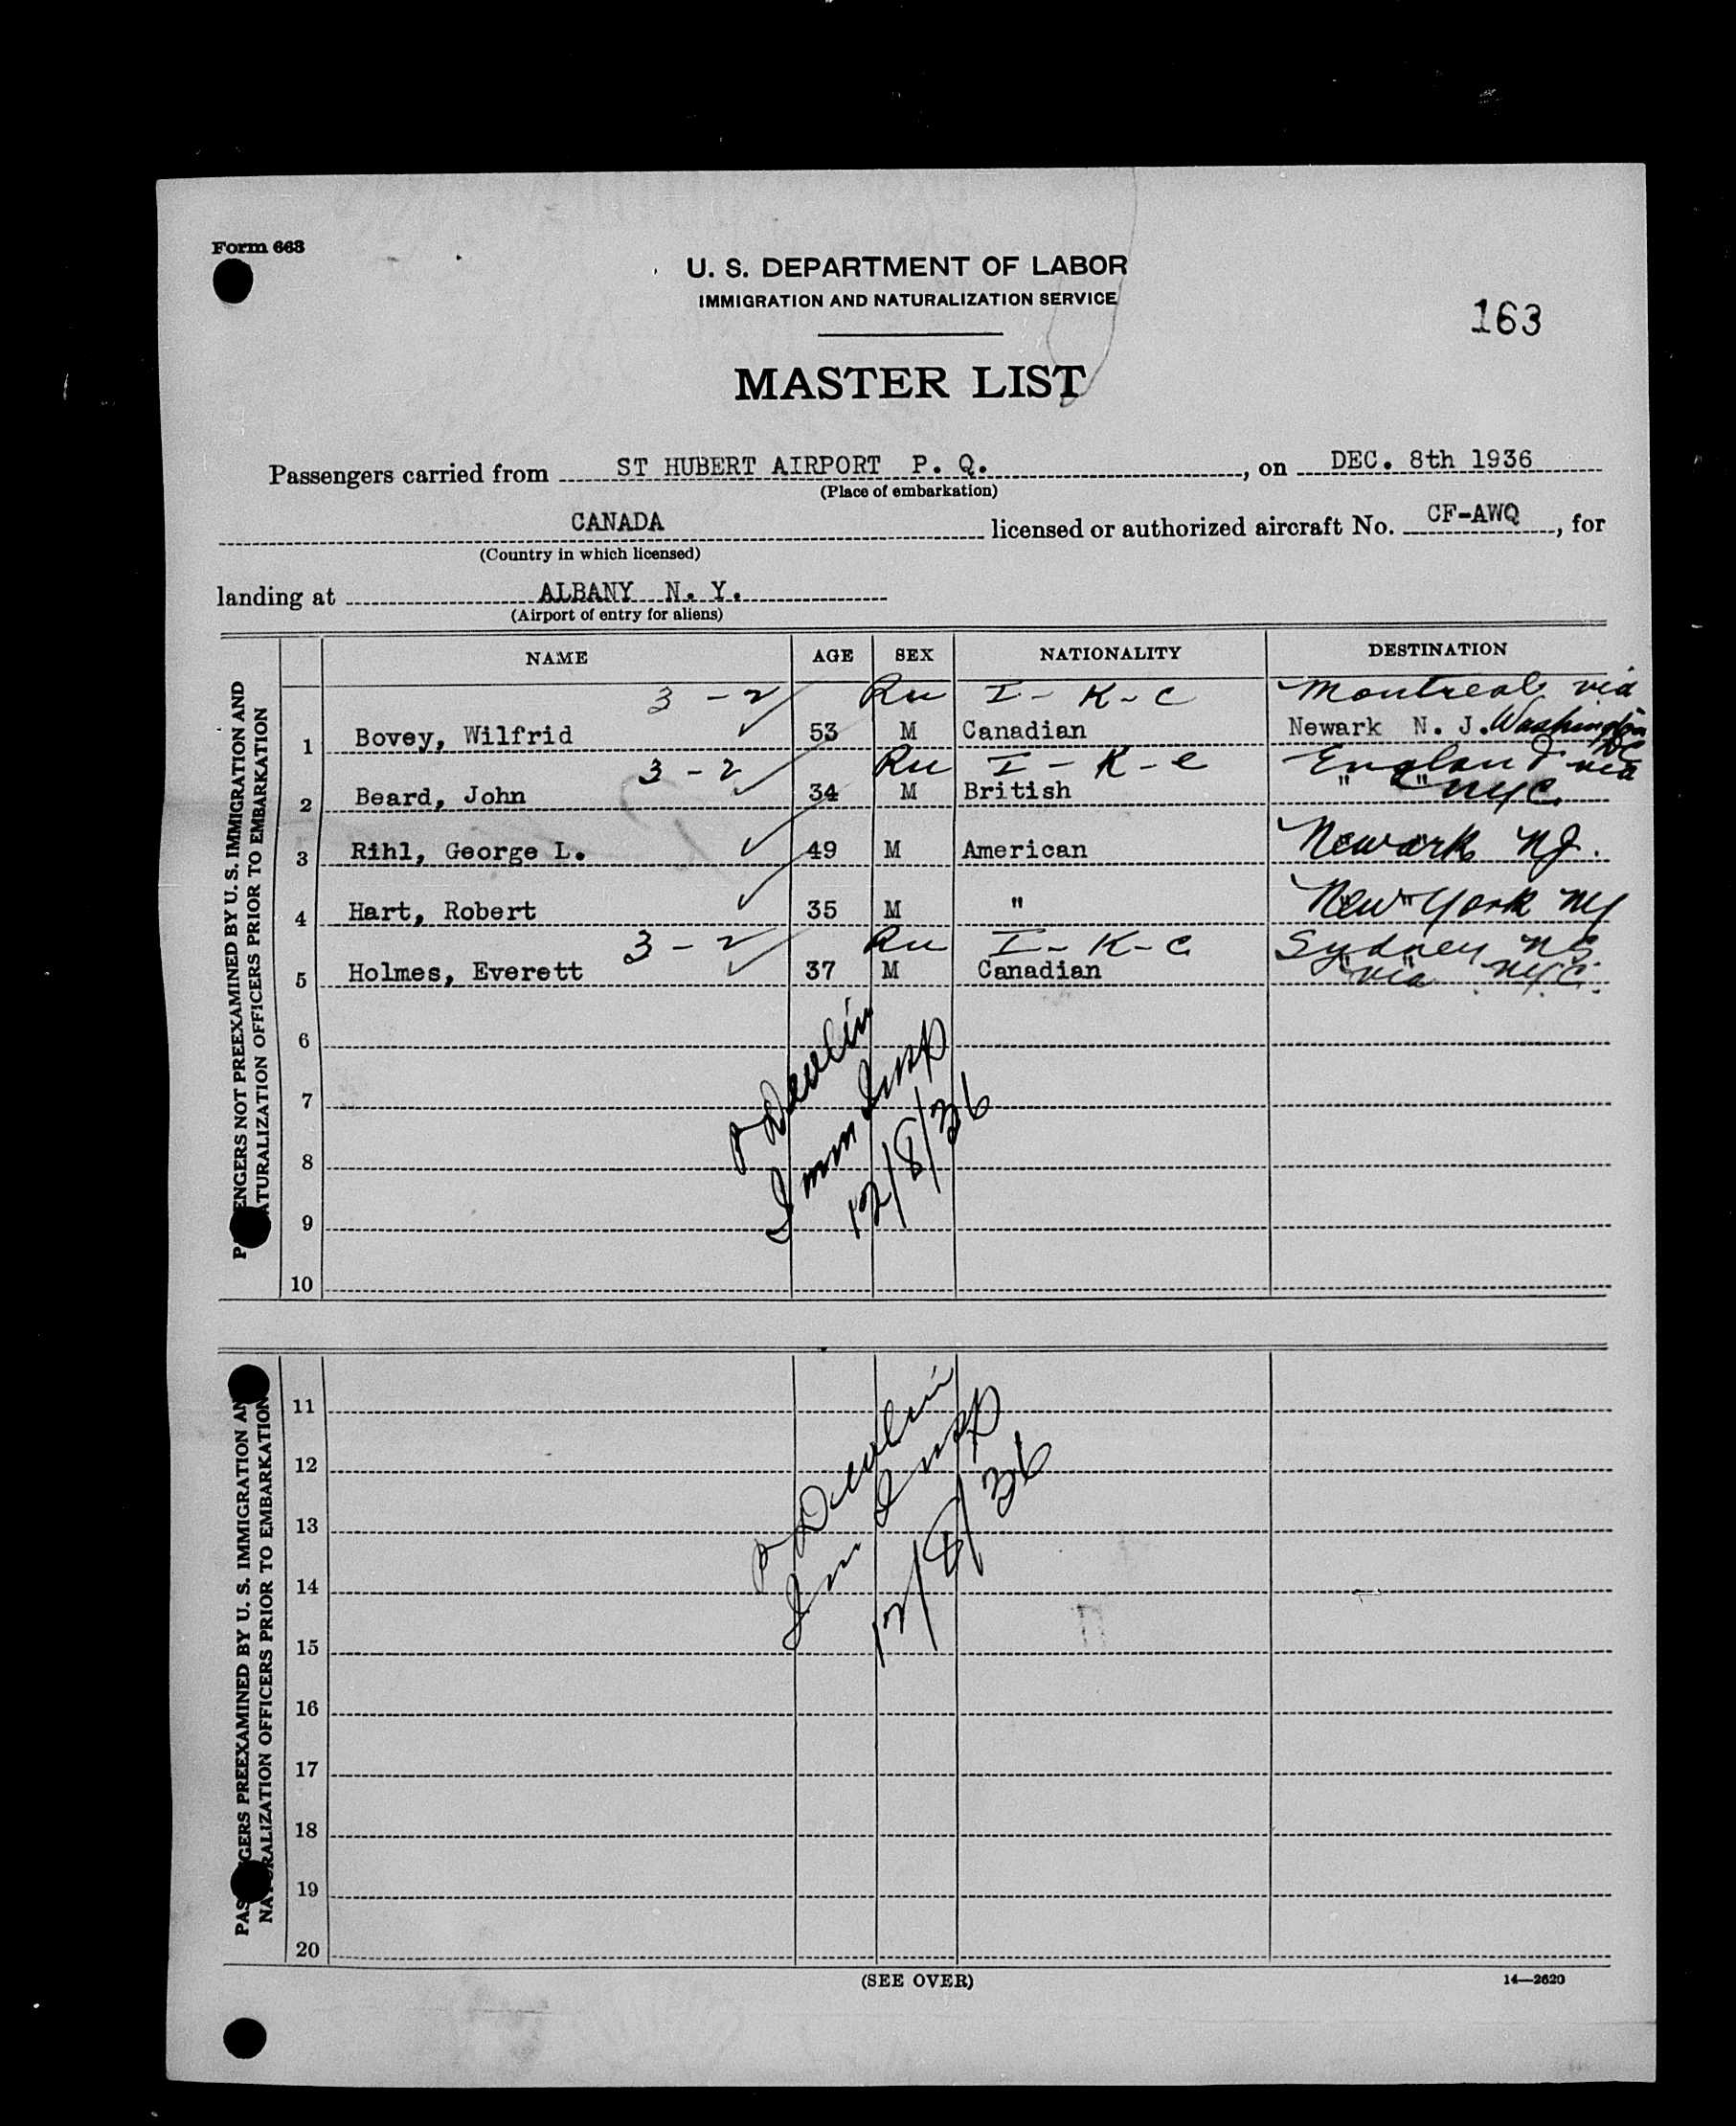 Form 663
U. S. DEPARTMENT OF LABOR
IMMIGRATION AND NATURALIZATION SERVICE
163
MASTER LIST
Passengers carried from ST HUBERT AIRPORT P. Q. , on DEC. 8th 1936
(Place of embarkation)
CANADA licensed or authorized aircraft No. CF-AWQ , for
(Country in which licensed)
landing at ALBANY N. Y.
(Airport of entry for aliens)
NAME AGE SEX NATIONALITY DESTINATION
PASSENGERS NOT PREEXAMINED BY U. S. IMMIGRATION AND
NATURALIZATION OFFICERS PRIOR TO EMBARKATION
3 - 2 Ru I - K - C Montreal via
1 Bovey, Wilfrid 53 M Canadian Newark N. J. Washington
DC
3 - 2 Ru I - K - C England via
2 Beard, John 34 M British " " NYC
3 Rihl, George L. 49 M American Newark NJ.
4 Hart, Robert 35 M " New York NY
3 - 2 Ru I - K - C Sydney NS
5 Holmes, Everett 37 M Canadian " " via NYC.
6
7
8
9
10
P Devlin
Imm Insp
12/8/36
PASSENGERS PREEXAMINED BY U. S. IMMIGRATION AND
NATURALIZATION OFFICERS PRIOR TO EMBARKATION
11
12
13
14
15
16
17
18
19
20
P Devlin
Im Insp
12/8/36
(SEE OVER)
14—2620